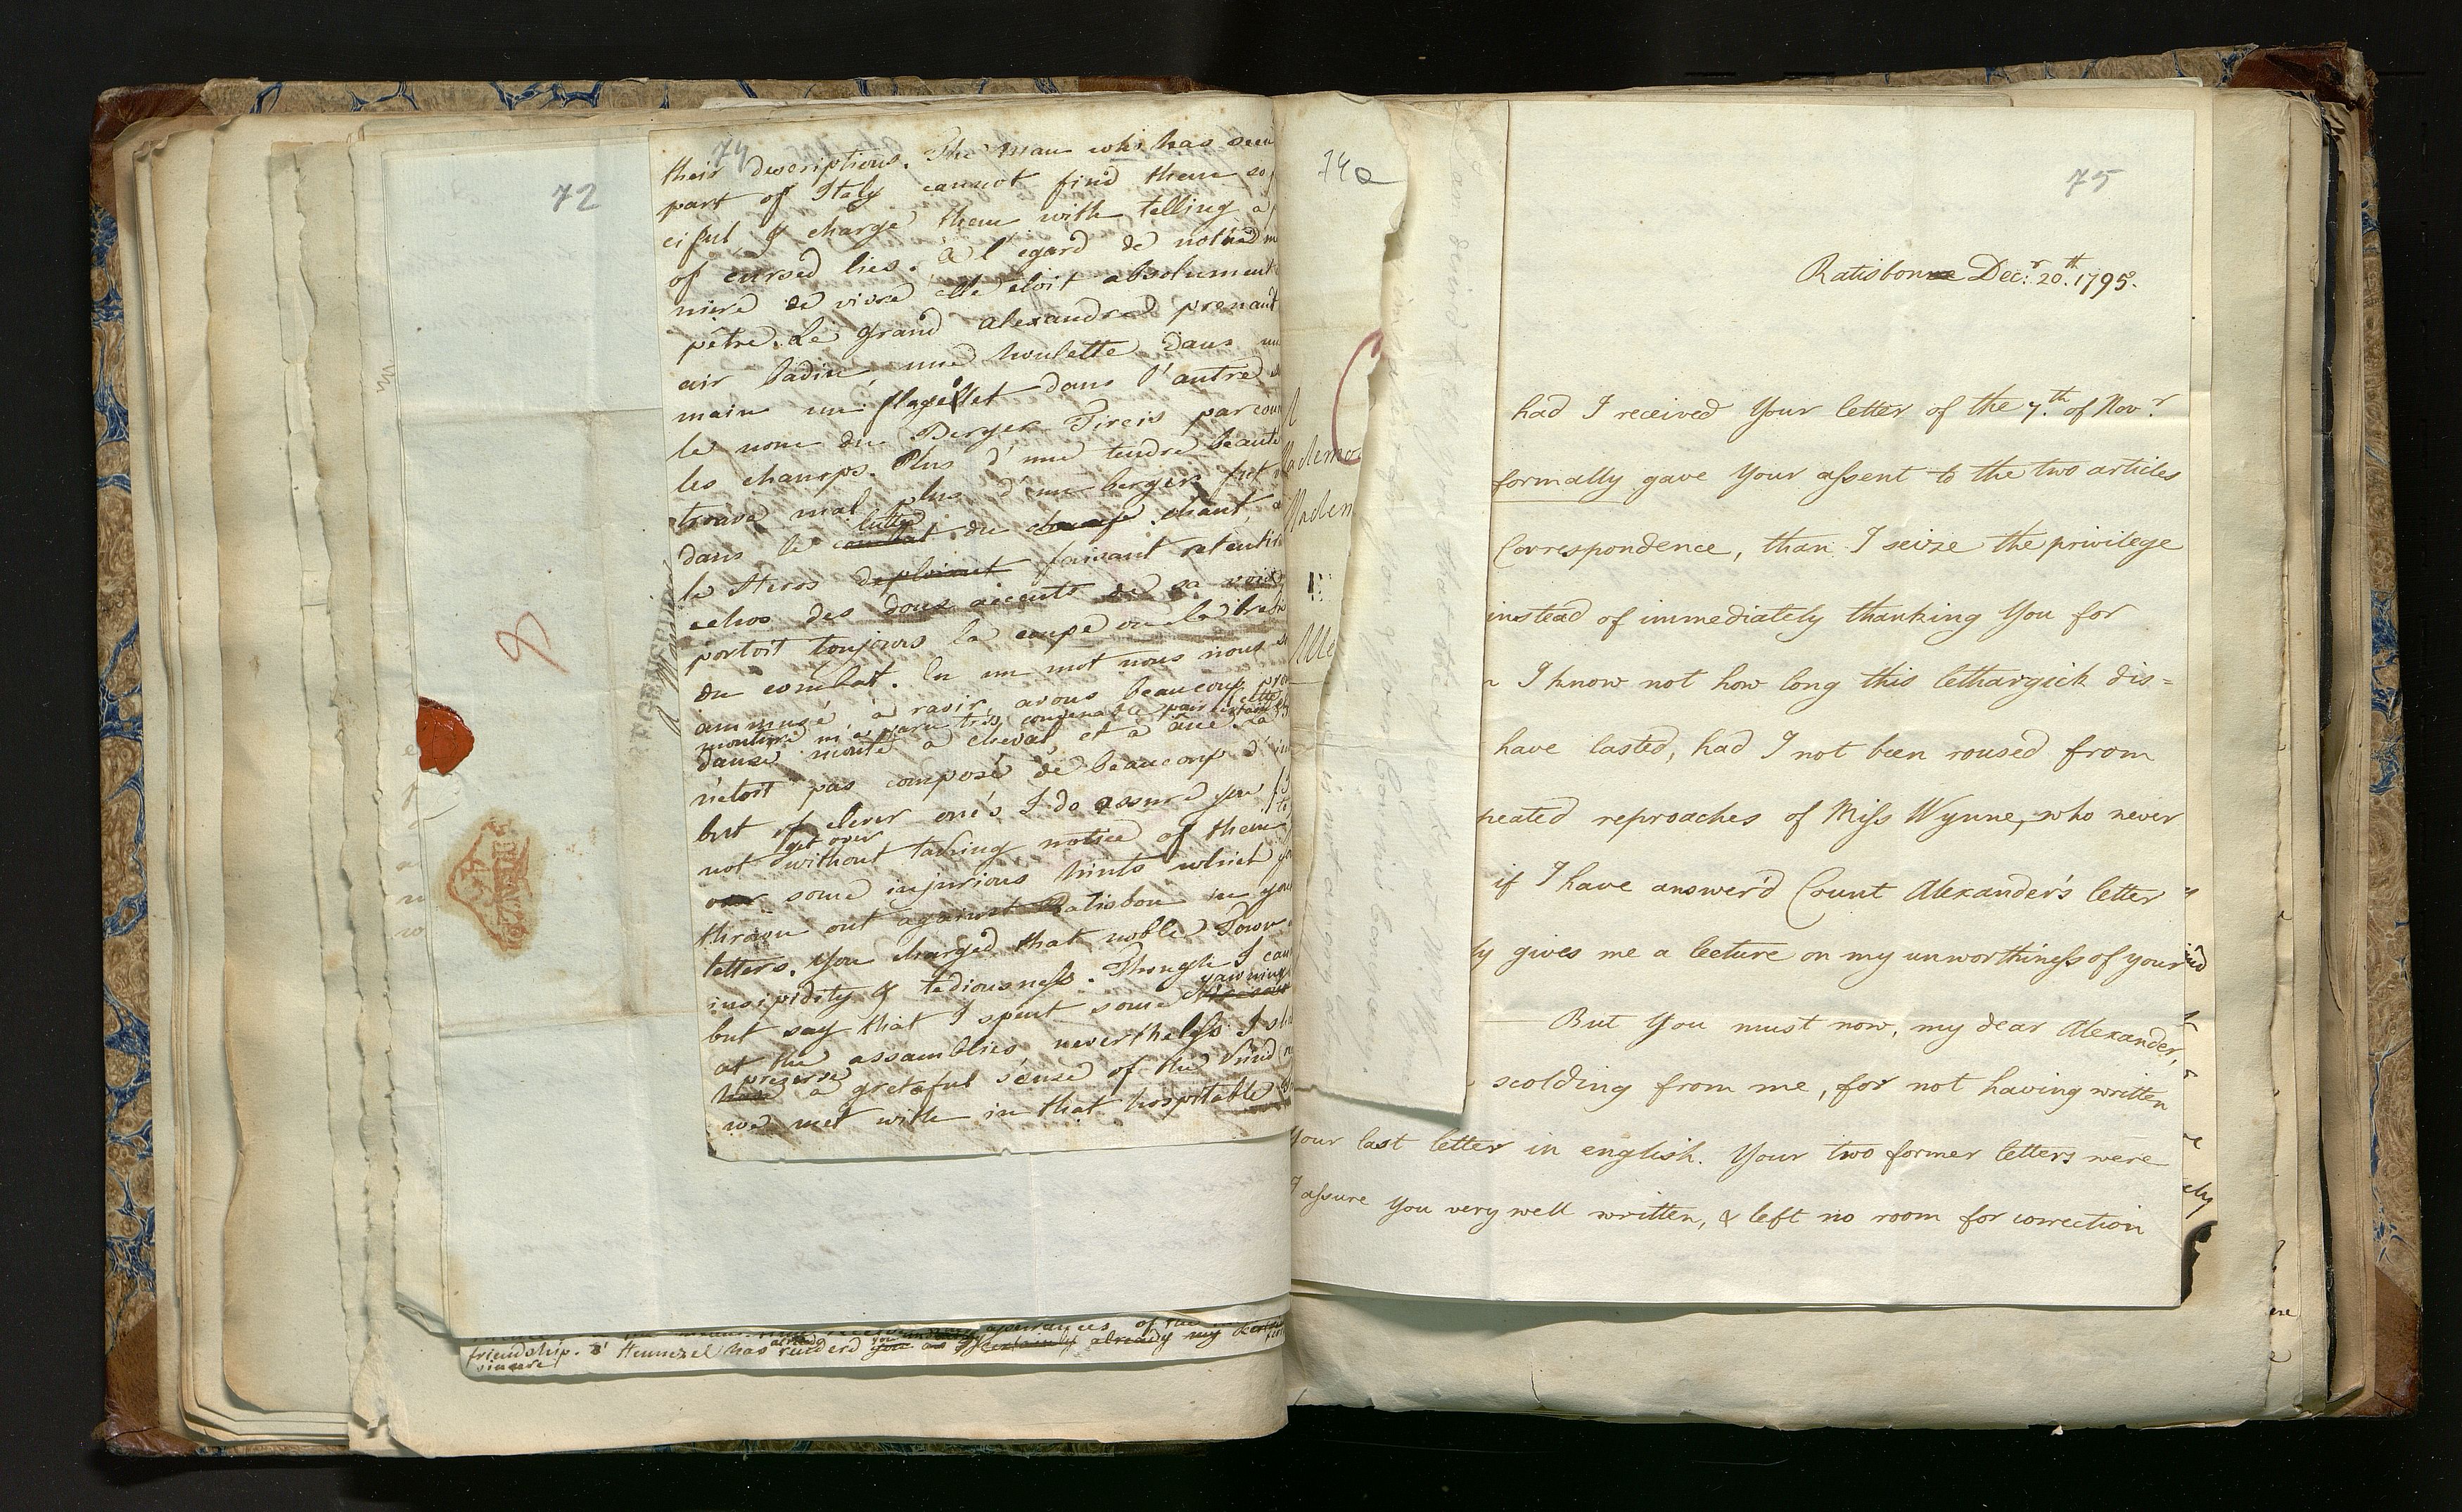 72
74
their descriptions. The man who has seen
part of Italy cannot find them so
ciful & charge them with telling a
of cursed lies. à l'egard de notre m
niere de vivre elle étoit absolument
pêtre. Le grand Alexandre prenant
air badin, une houlette dans un
main un flageolet dans l'autre
le nom du Berger Tircis parcour
les champs. Plus d'une tendre beauté
trouva mal plus d'un berger fut
lutte
dans le combat du champ chant,
le Heros deploiant faisant retentir
echos des doux accents de sa voix
portoit toujours la coupe ou la brebis
du combat. En un mot nous nous
ammusé à ravir avons beaucoup
monture m'a paru très convenable
dansé monté à cheval et à âne. La
n'etoit pas composé de beaucoup d'
but of clever one's I do assure you
get over
not without taking notice of them
over some injurious hints which
thrown out against Ratisbon in your
letters. You charged that noble Town
insipidity & tediousness. Though I can
yawning
but say that I spent some
at the assemblies, nevertheless I sh
preserve
have a grateful sense of the kind
we met with in that hospitable
friendship. Hennezel has renderd you as certainly already my
sincere
74a
ademo
Madem
Mlle
75
Ratisbonne Dec.r 20.th 1795.
had I received Your letter of the 7.th of Nov.r
formally gave Your assent to the two articles
Correspondence, than I seize the privilege
instead of immediately thanking You for
I know not how long this lethargick dis=
have lasted, had I not been roused from
peated reproaches of Miss Wynne, who never
if I have answer'd Count Alexander's letter
ly gives me a lecture on my unworthiness of your
But You must now, my dear Alexander,
scolding from me, for not having written
Your last letter in english. Your two former letters were
I assure You very well written, & left no room for correction